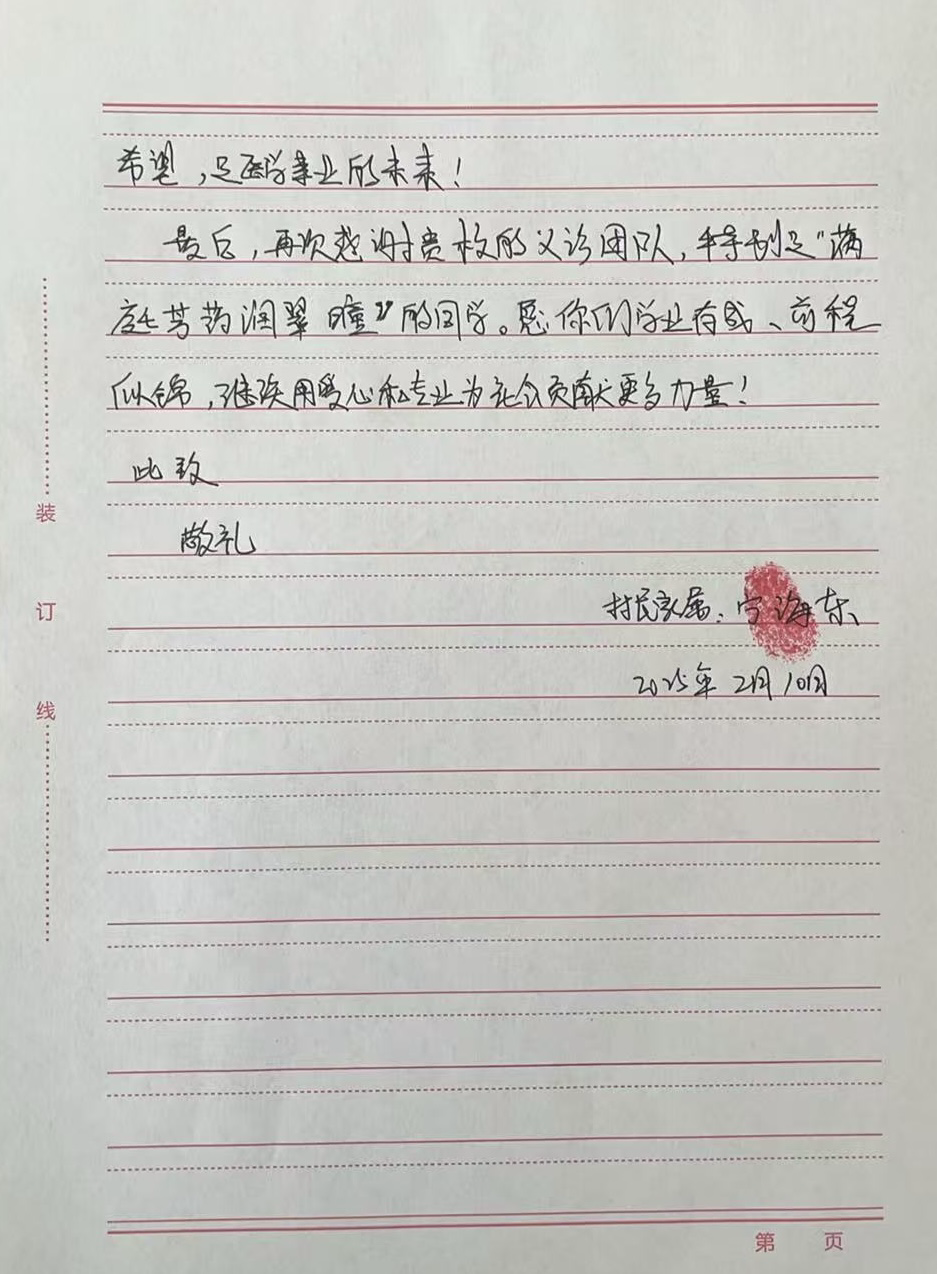 希望，是医学事业的未来！
最后，再次感谢贵校的义诊团队，特别是“满
庭芳药润翠瞳”的同学。愿你们学业有成、前程
似锦，继续用爱心和专业为社会贡献更多力量！
此致
敬礼
村民家属：宁海东
2025年2月10日
装
订
线
第 页